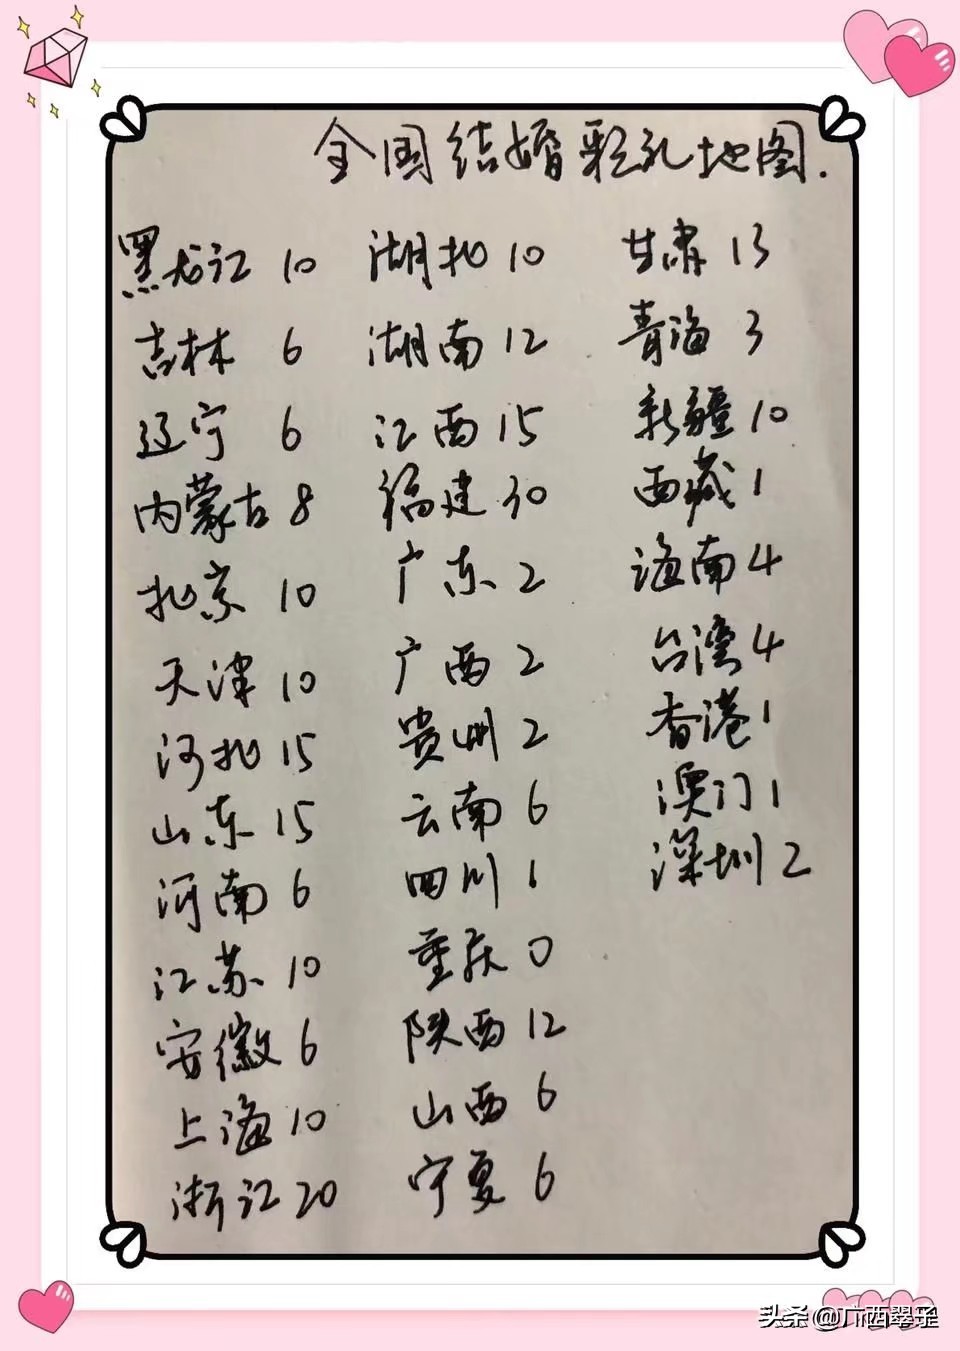 全国结婚彩礼地图.
黑龙江 10
吉林 6
辽宁 6
内蒙古 8
北京 10
天津 10
河北 15
山东 15
河南 6
江苏 10
安徽 6
上海 10
浙江 20
湖北 10
湖南 12
江西 15
福建 30
广东 2
广西 2
贵州 2
云南 6
四川 1
重庆 0
陕西 12
山西 6
宁夏 6
甘肃 13
青海 3
新疆 10
西藏 1
海南 4
台湾 4
香港 1
澳门 1
深圳 2
头条 @广西翠子